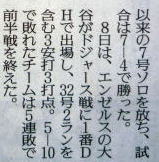 以来の7号ソロを放ち、試
合は7―4で勝った。
8日は、エンゼルスの大
谷がドジャース戦に1番D
Hで出場し、32号2ランを
含む3安打3打点。5―10
で敗れたチームは5連敗で
前半戦を終えた。